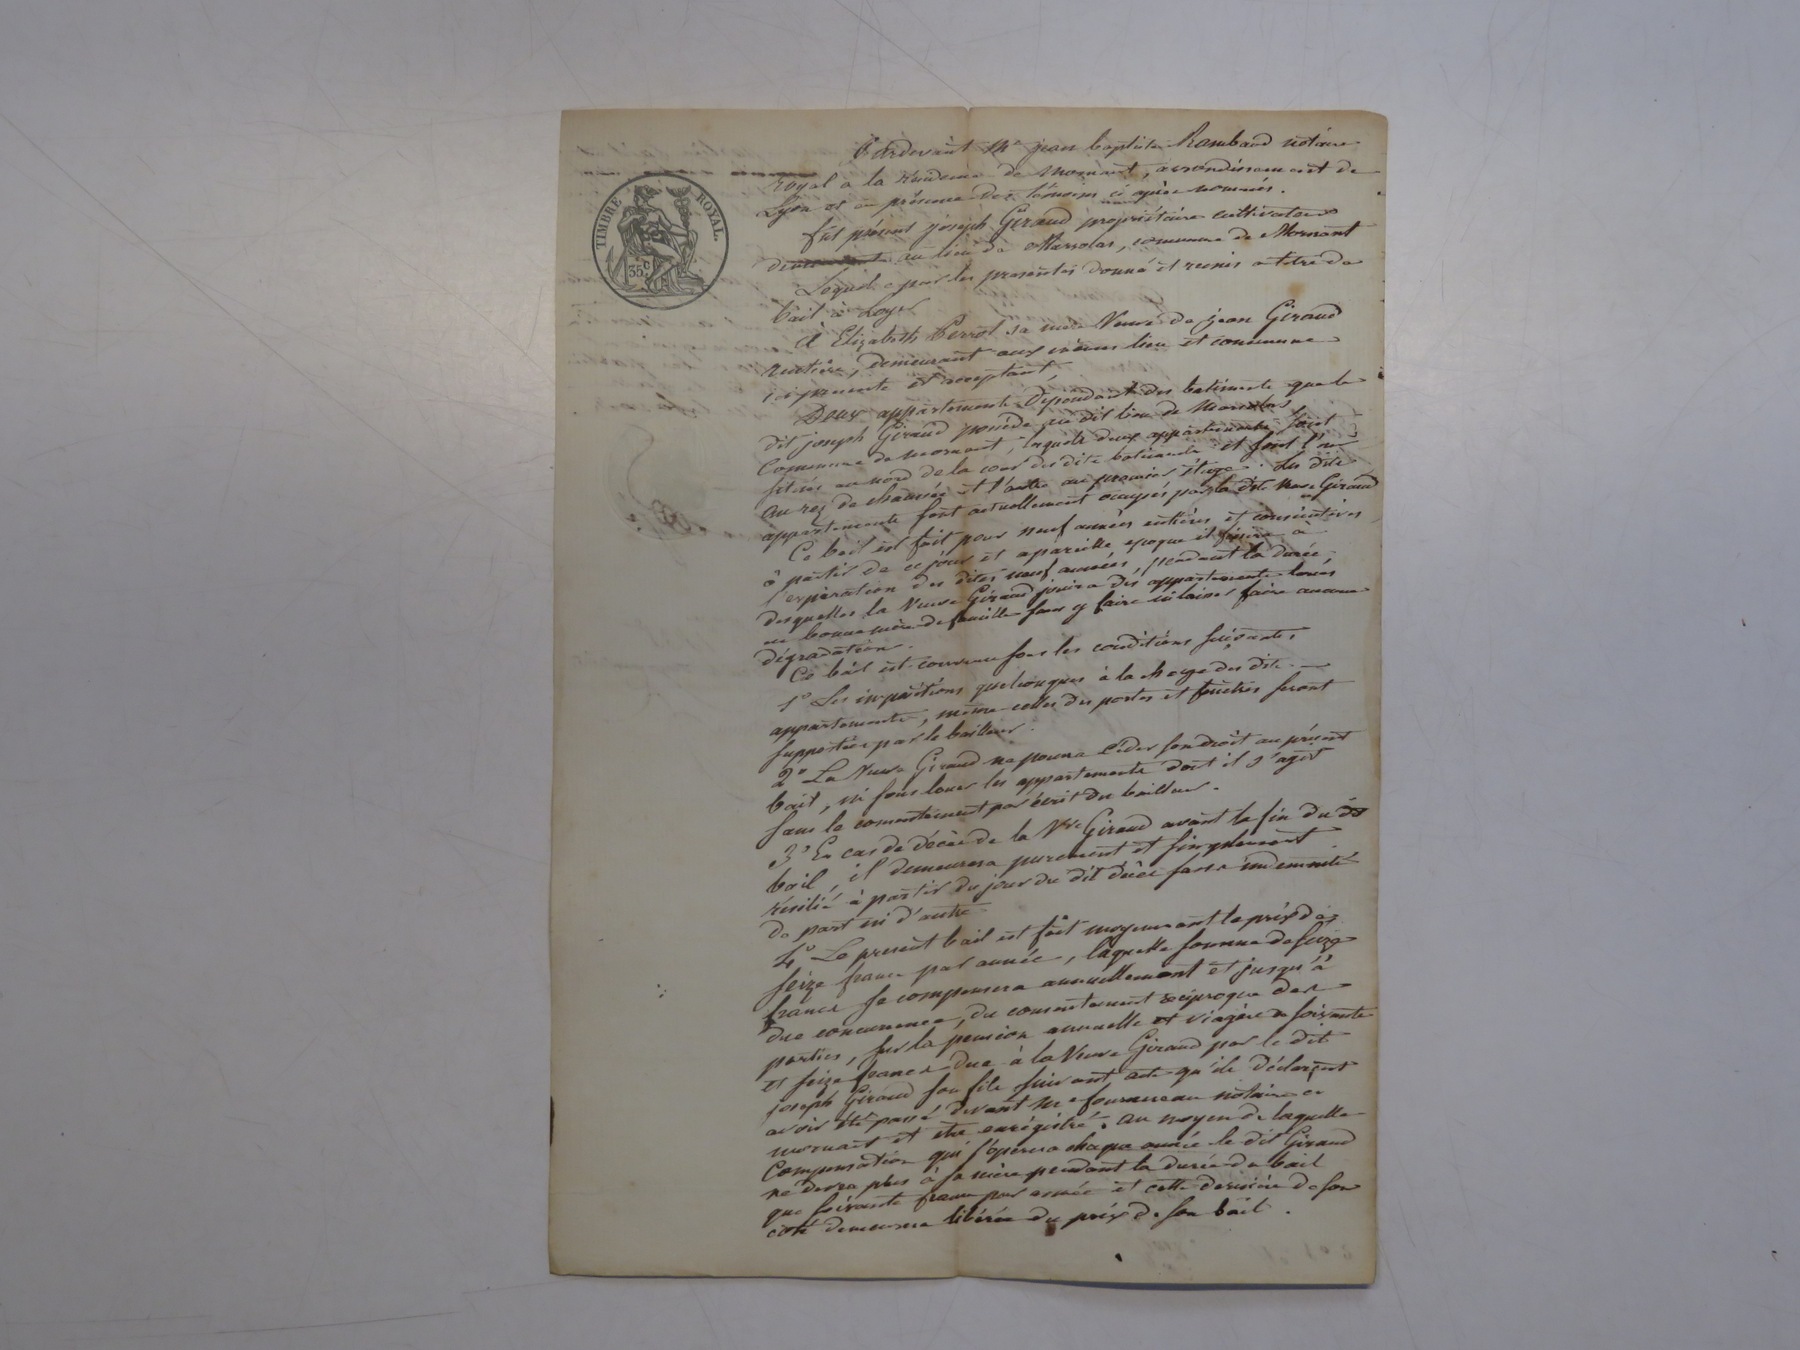 TIMBRE ROYAL.
35c
Pardevant Me jean baptiste Rambaud notaire
royal a la residence de Mornant, arrondissement de
Lyon et en présence des témoins ci après nommés.
fut présent joseph Giraud propriétaire cultivateur
demeurant au lieu de , commune de Mornant
Lequel a par les presentes donné et remis a titre de
bail à Loyer
A Elizabeth Perrot sa mère Veuve de jean Giraud
rentière, demeurant aux mêmes lieu et commune
ici presente et acceptant,
Deux appartements dépendant des batiments que le
dit joseph Giraud possède au dit lieu de
Commune de mornant, lesquels deux appartements sont
situés au nord de la cour des dits batiments et sont l'un
au rez de chaussée et l'autre au premier étage. Les dits
appartements sont actuellement occupés par la dite Veuve Giraud
Ce bail est fait pour neuf années entières et consécutives
à partir de ce jour et a pareille epoque il finira à
l'expiration des dites neuf années, pendant la durée
desquelles la Veuve Giraud jouira des appartements loués
en bonne mère de famille sans y faire ni laisser faire aucune
dégradation.
Ce bail est convenu sous les conditions suivantes
1° Les impositions quelconques à la charge des dits
appartements, même celles des portes et fenêtres seront
supportées par le bailleur.
2° La Veuve Giraud ne pourra céder son droit au présent
bail, ni sous louer les appartements dont il s'agit
sans le consentement par écrit du bailleur.
3° En cas de décès de la Vve Giraud avant la fin du dt
bail, il demeurera purement et simplement
résilié à partir du jour du dit décès sans indemnité
de part ni d'autre
4° Le present bail est fait moyennant le prix de
seize francs par année, laquelle somme de seize
francs se compensera annuellement et jusqu'à
due concurrence, du consentement réciproque des
parties, sur la pension annuelle et viagère de soixante
et seize francs due à la Veuve Giraud par le dit
joseph Giraud son fils suivant acte qu'ils déclarent
avoir été passé devant Me fourneau notaire a
mornant et être enrégistré. au moyen de laquelle
Compensation qui s'opérera chaque année le dit Giraud
ne devra plus à sa mère pendant la durée du bail
que soixante francs par année et cette dernière de son
côté demeurera libérée du prix de son bail.